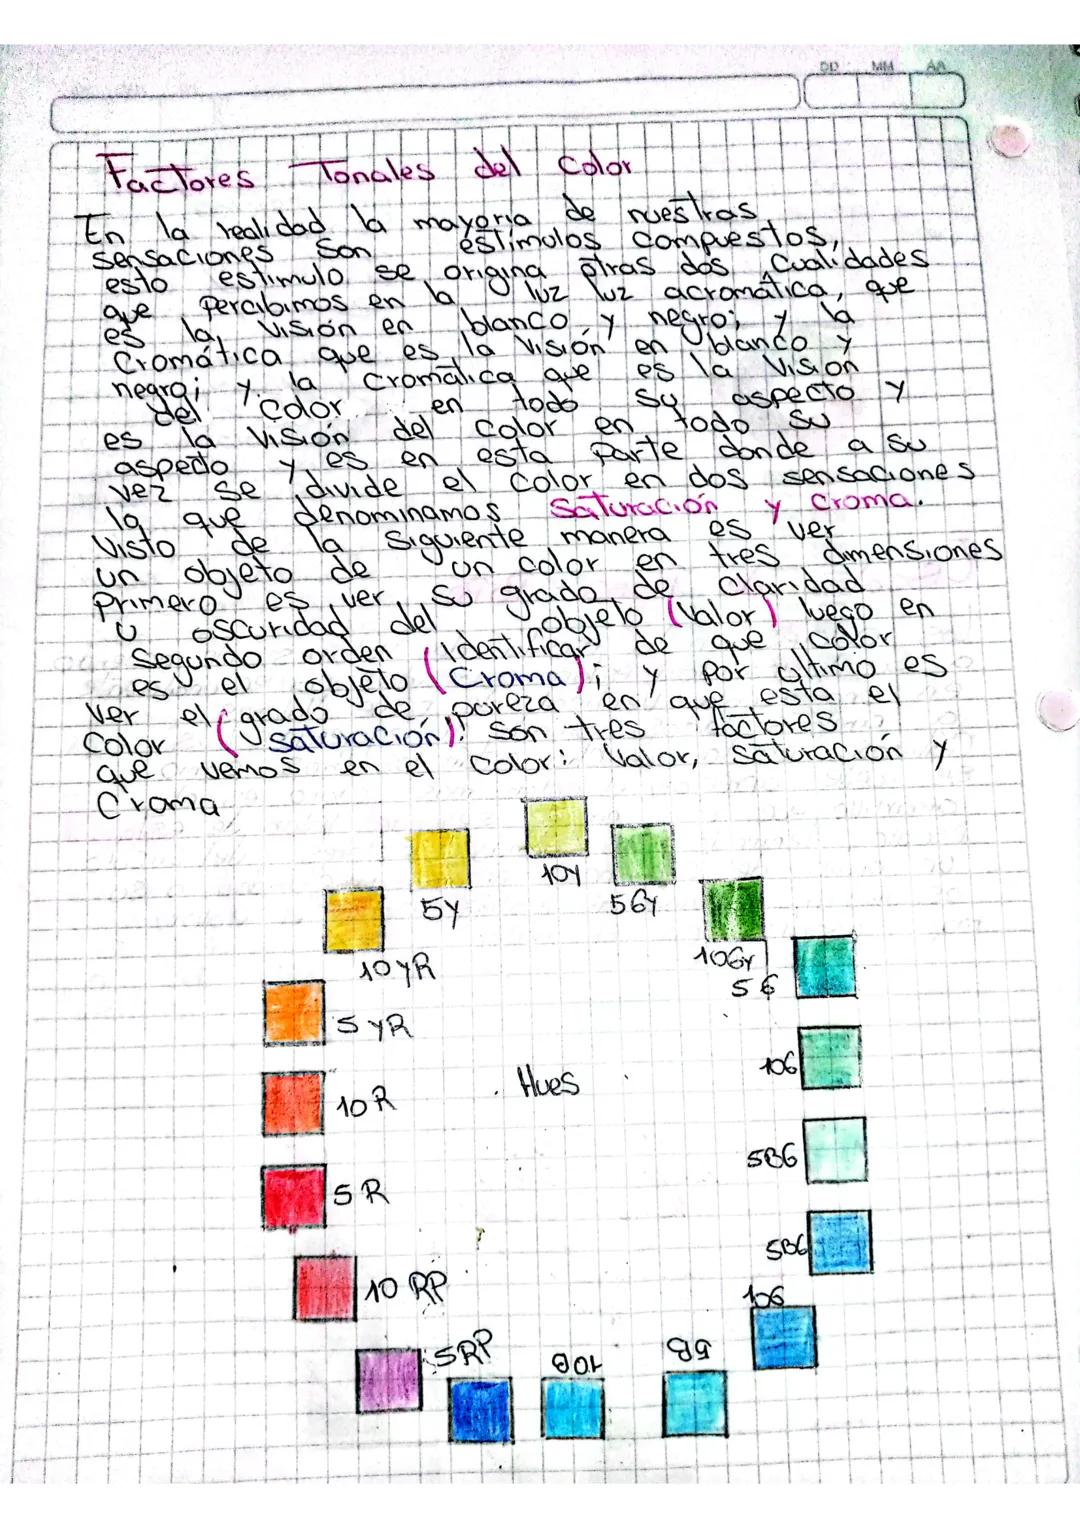 DD MM AA
Factores Tonales del Color
En la realidad la mayoria de nuestras
sensaciones son estímulos compuestos,
esto estimulo se origina otras dos cualidades
que percibimos en la luz luz acromática, que
es la visión en blanco y negro; y la
Cromática que es la visión en blanco y
negro; y la cromática que es la visión
del color en todo su aspecto y
es la visión del color en todo su
aspecto y es en esta parte donde a su
vez se divide el color en dos sensaciones
la que denominamos Saturación y croma.
Visto de la siguiente manera es ver
un objeto de un color en tres dimensiones
primero es ver su grado de claridad
u oscuridad del objeto (Valor) luego en
segundo orden (identificar de que color
es el objeto (Croma); y por ultimo es
ver el grado de pureza en que esta el
Color (saturación). Son tres factores
que vemos en el color: Valor, saturación y
Croma
10Y
5Y
5GY
10YR
10GY
5G
5YR
10G
Hues
10R
5BG
5R
5BG
10RP
10G
5RP
10B
5B